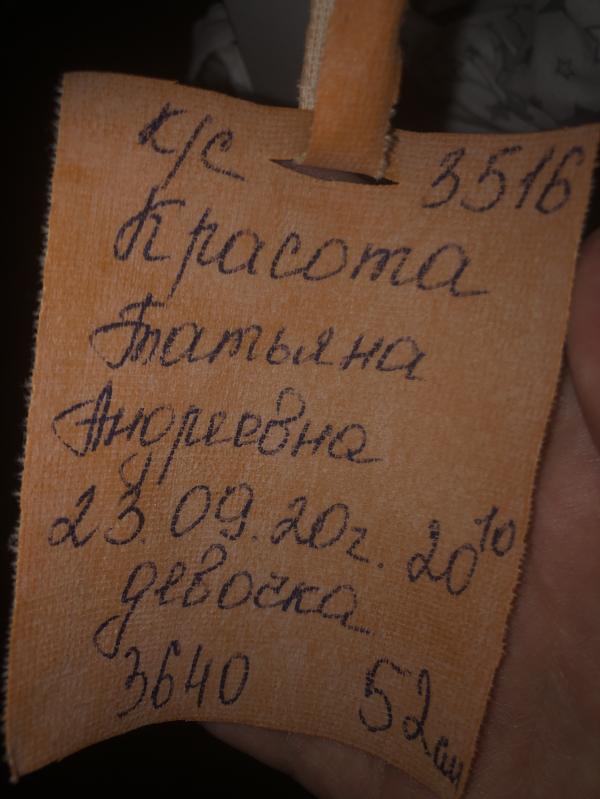 к/с 3516
Красота
Татьяна
Андреевна
23.09.20г. 20¹⁰
девочка
3640 52см